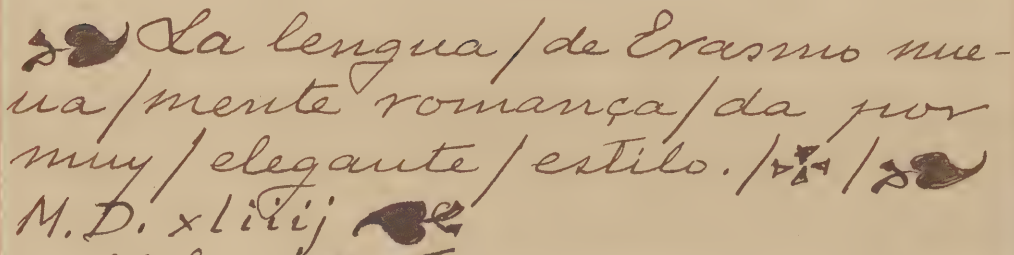 ❧ La lengua / de Erasmo nue-
ua / mente romança / da por
muy / elegante / estilo. / ✣ / ❧
M. D. xliiij ☙